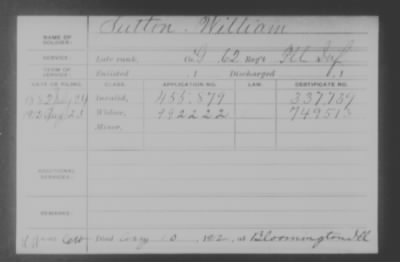 Sutton, William
NAME OF SOLDIER:
SERVICE: Late rank, Co. G, 62 Reg't Ill Inf
TERM OF SERVICE: Enlisted , 1 Discharged , 1
DATE OF FILING. CLASS. APPLICATION NO. LAW. CERTIFICATE NO.
1882 July 24 Invalid, 455.879 337.739
1912 Aug 23 Widow, 992222 749513
Minor,
ADDITIONAL SERVICES:
REMARKS:
Died Aug 10, 1912, at Bloomington Ill